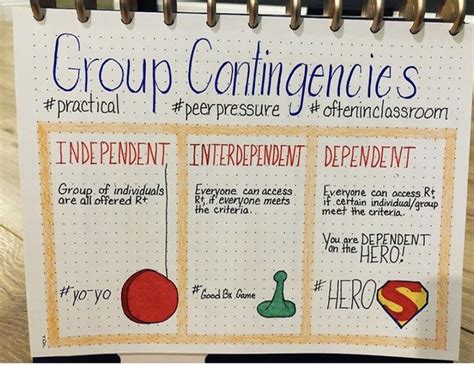 Group Contingencies
#practical #peerpressure #ofteninclassroom
INDEPENDENT
Group of individuals
are all offered R+
#yo-yo
INTERDEPENDENT
Everyone can access
R+, if everyone meets
the criteria.
#Good Bx Game
DEPENDENT
Everyone can access R+
if certain individual/group
meet the criteria.
You are DEPENDENT
on the HERO!
#HERO
S